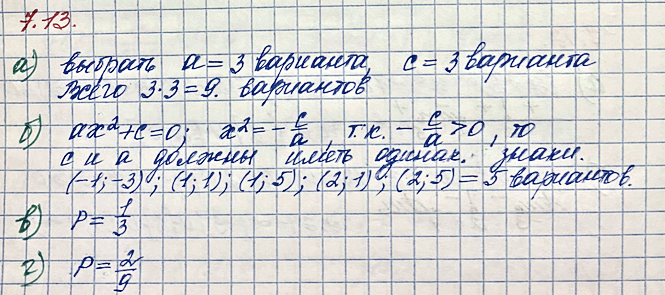 7.13.
а) выбрать a = 3 варианта, c = 3 варианта
Всего 3·3 = 9. вариантов
б) ax²+c=0; x² = -c/a, т.к. -c/a > 0, то
c и a должны иметь одинак. знаки.
(-1;-3); (1;1); (1;5); (2;1); (2;5) = 5 вариантов.
в) P = 1/3
г) P = 2/9